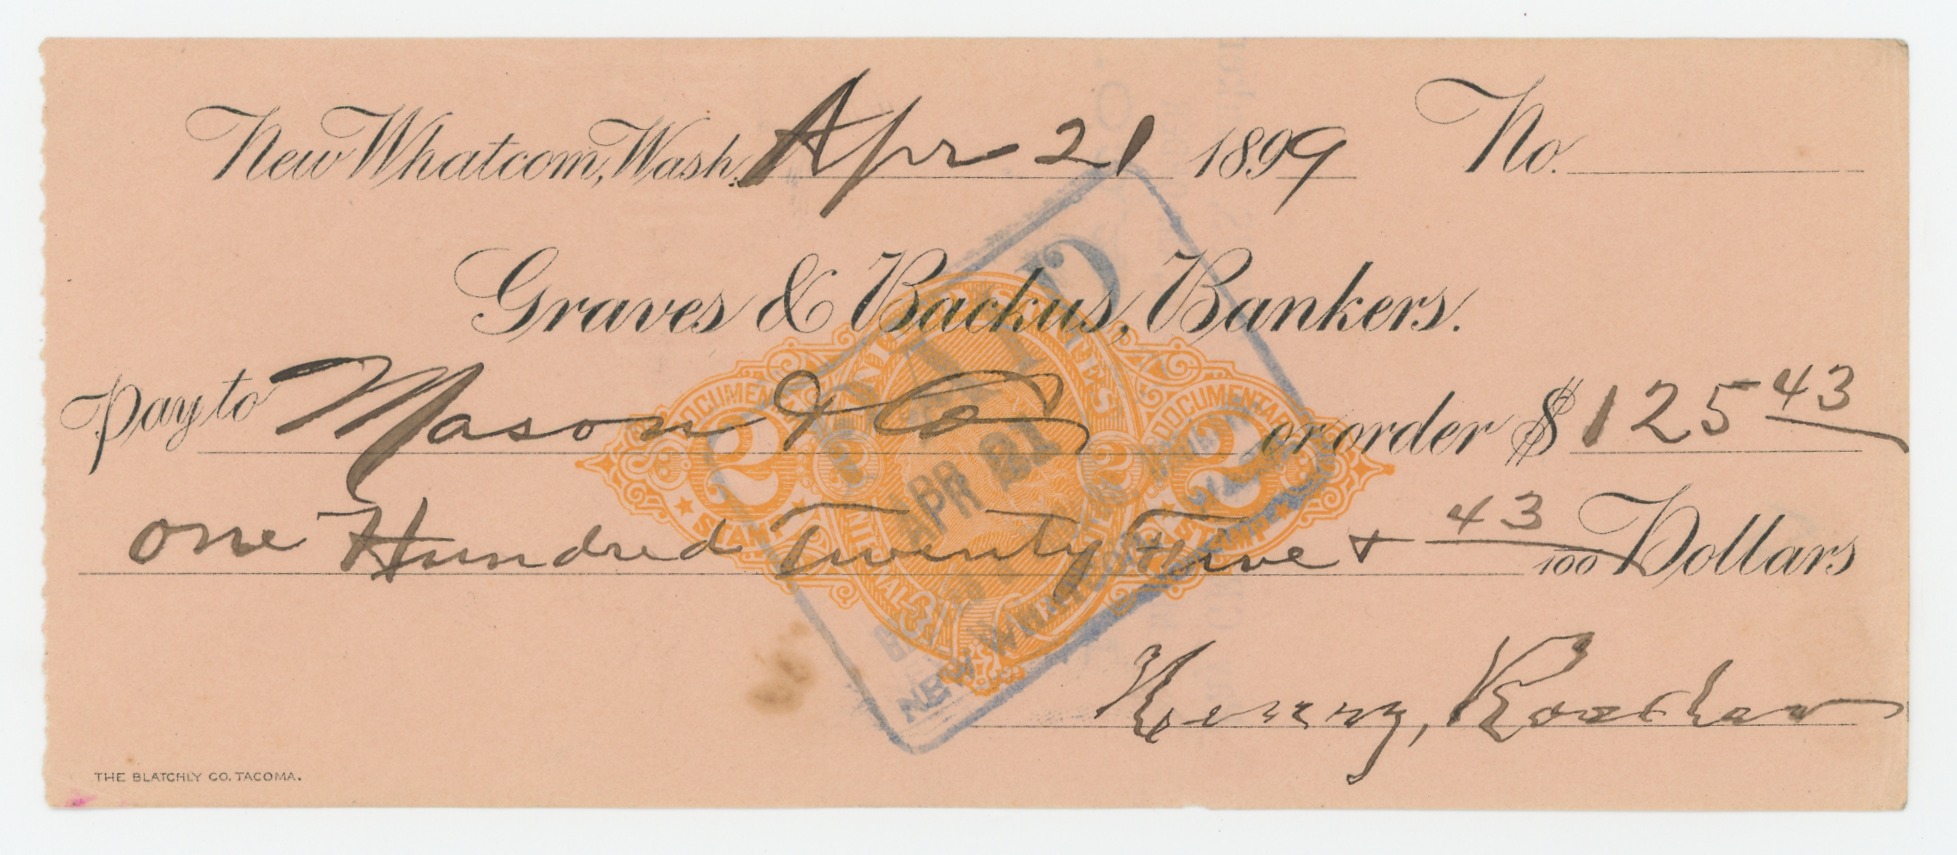 New Whatcom, Wash. Apr 21 1899 No.
Graves & Backus, Bankers.
Pay to Mason & Co or order $125 43
One Hundred Twenty Five & 43/100 Dollars
Henry,
PAID
APR 21
NEW WHATCOM
UNITED STATES
DOCUMENTARY
2
2
2
2
DOCUMENTARY
STAMP
STAMP
INTERNAL
THE BLATCHLY CO. TACOMA.